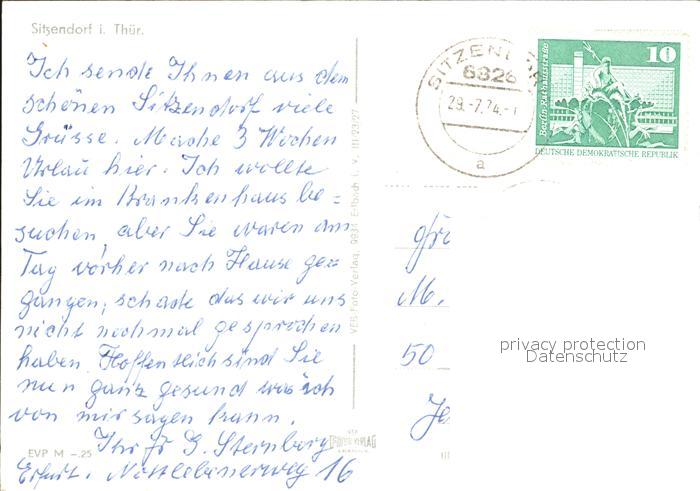 Sitzendorf i. Thür.
Ich sende Ihnen aus dem
schönen Sitzendorf viele
Grüsse. Mache 3 Wochen
Urlau hier. Ich wollte
Sie im Krankenhaus be=
suchen, aber Sie waren am
Tag vorher nach Hause ge=
gangen, schade das wir uns
nicht nochmal gesprochen
haben. Hoffentlich sind Sie
nun ganz gesund was ich
von mir sagen kann.
Ihr G. Sternberg
Erfurt. 16
EVP M –.25
VEB Foto-Verlag, 9931 Erlbach i. V.
SITZEND
6826
29.-7.74.-
a
10
Berlin Rathausstraße
DEUTSCHE DEMOKRATISCHE REPUBLIK
M.
50
privacy protection
Datenschutz